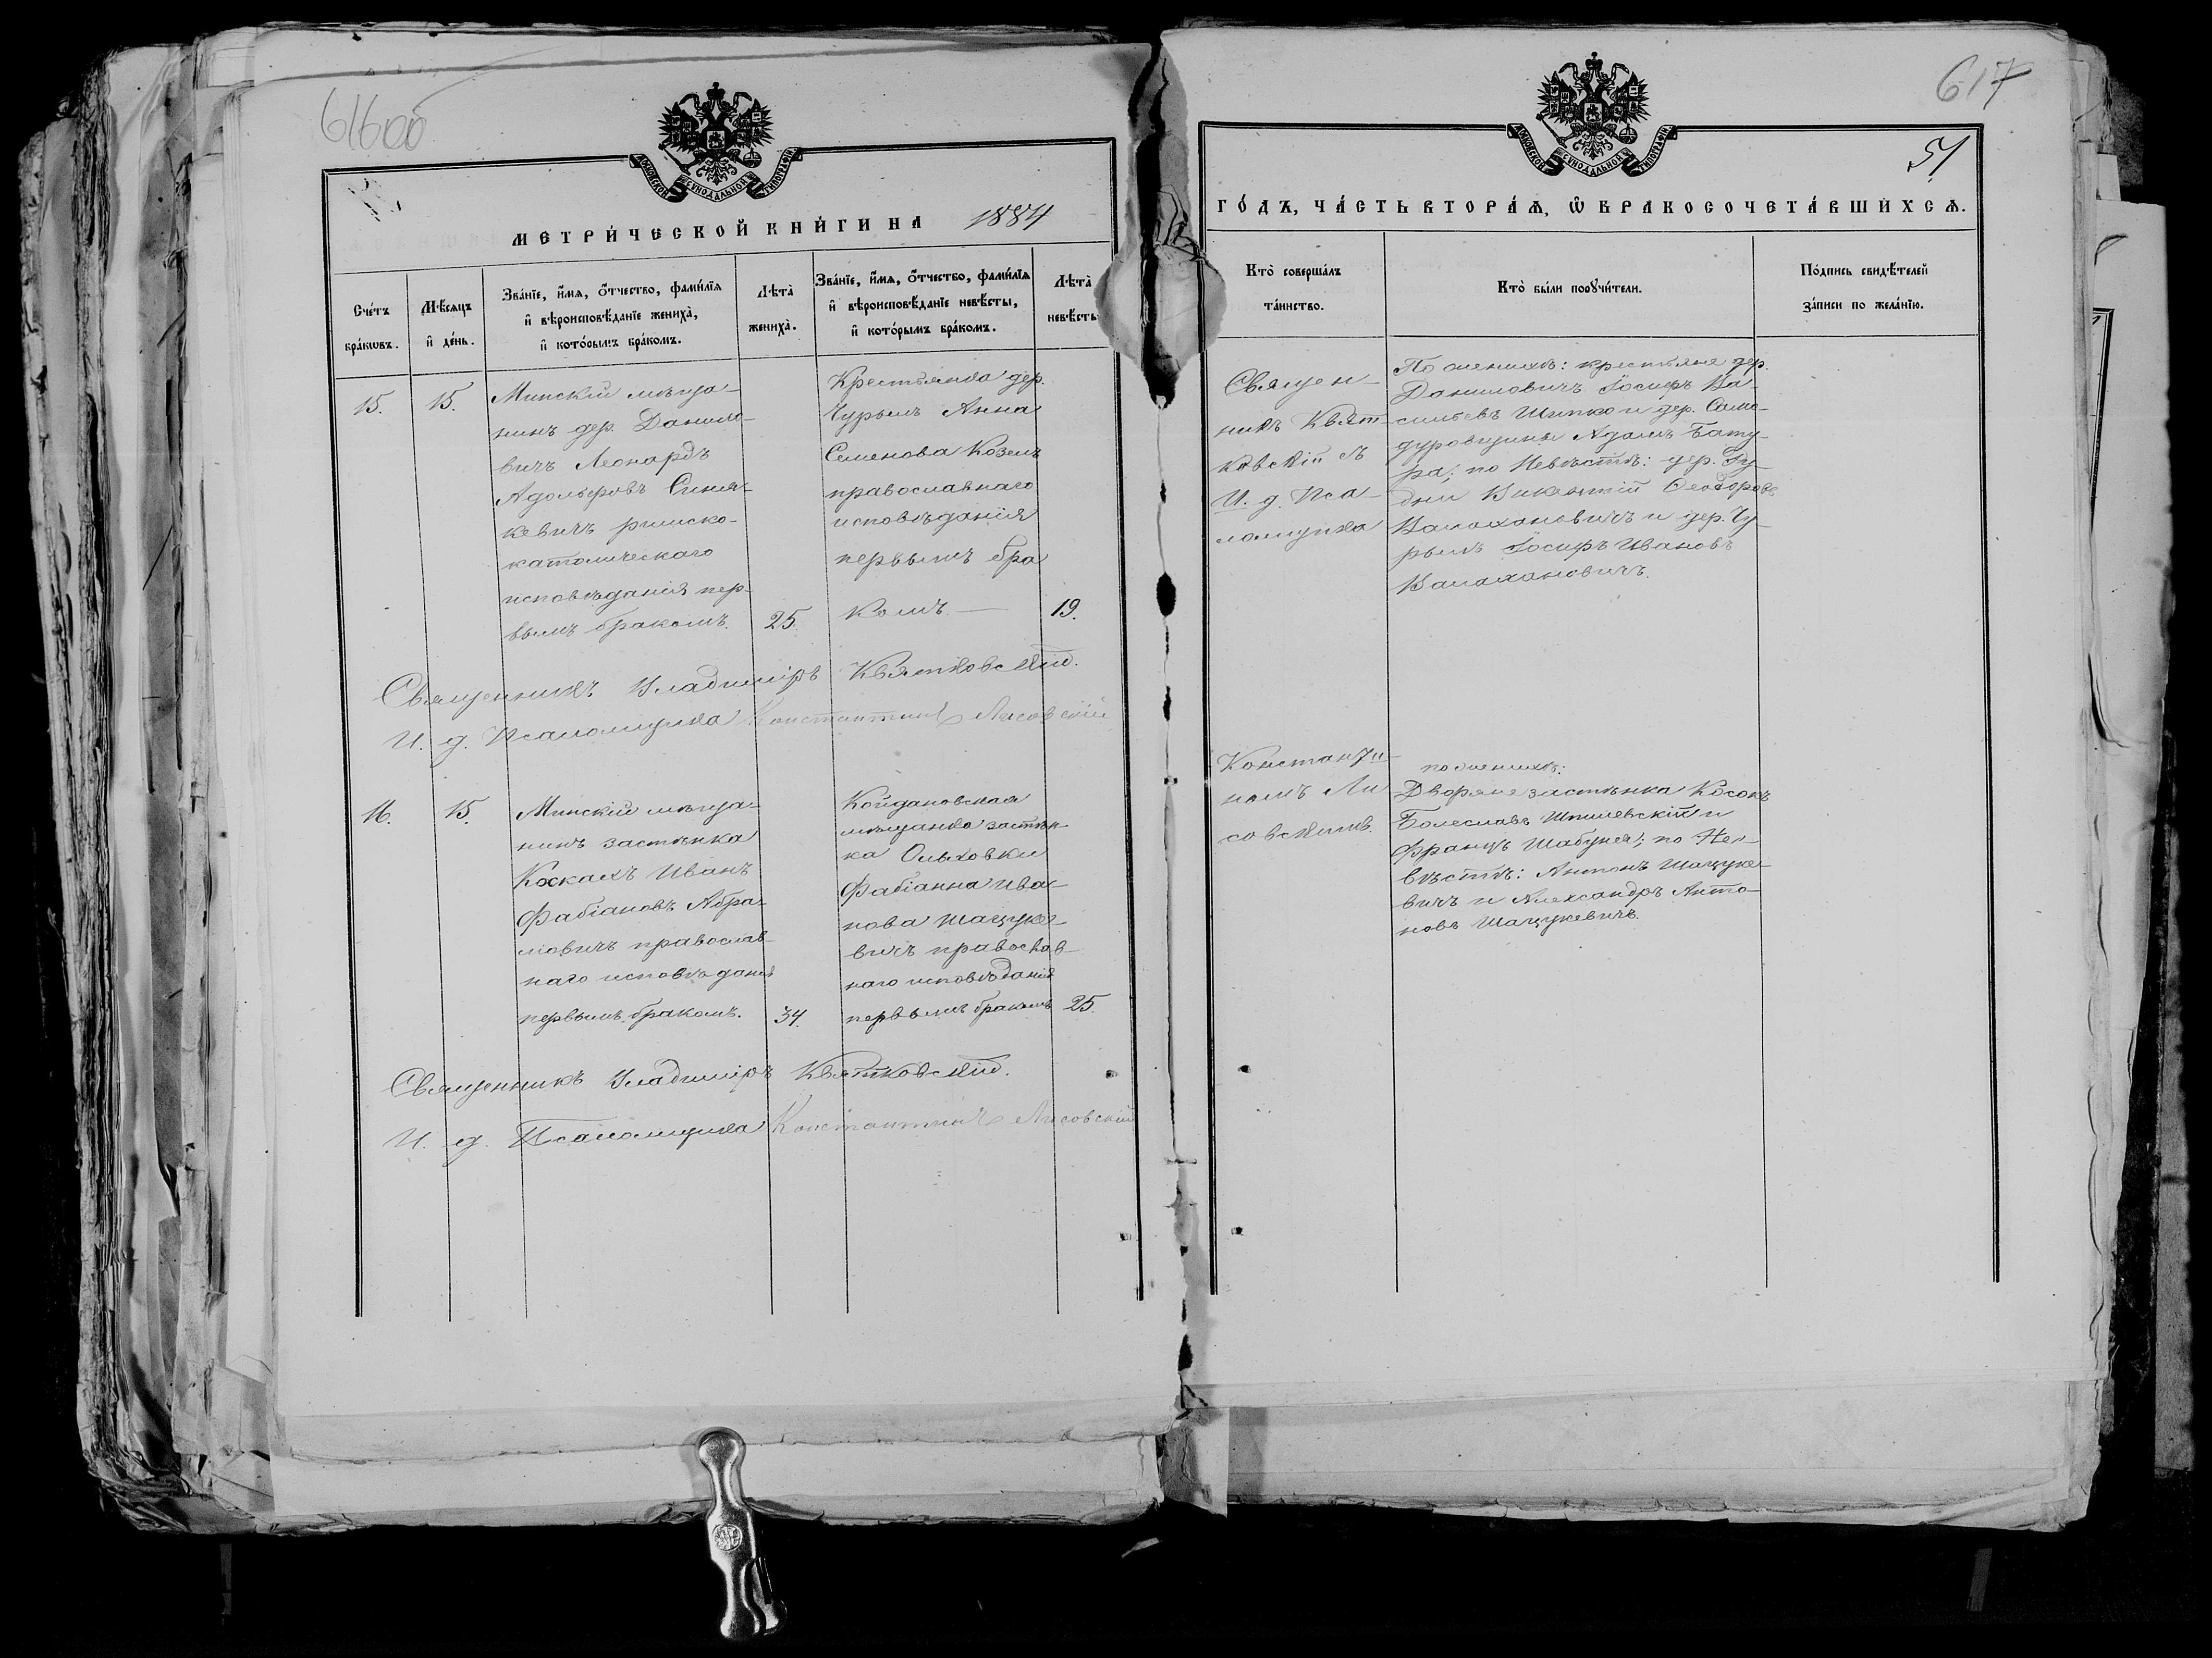 61600
МОСКОВСКОЙ СУНОДАЛЬНОЙ ТИПОГРАФІИ
МЕТРИ́ЧЕСКОЙ КНИ́ГИ НА 1884
Сче́тъ бра́кѡвъ.
Мѣ́сяцъ и҆ де́нь.
Зва́нїе, и҆́мѧ, ѻ҆́тчество, фами́лїѧ
и҆ вѣроисповѣ́данїе жениха̀,
и҆ кото́рымъ бра́комъ.
Лѣта̀ жениха̀.
Зва́нїе, и҆́мѧ, ѻ҆́тчество, фами́лїѧ
и҆ вѣроисповѣ́данїе невѣ́сты,
и҆ кото́рымъ бра́комъ.
Лѣта̀ невѣсты
15.
15.
Минскій мѣща-
нинъ дер. Данило-
вичъ Леонардъ
Адольфовъ Синя-
кевичъ римско-
католическаго
исповѣданія пер-
вымъ бракомъ.
25.
Крестьянка дер.
Чурылъ Анна
Семенова Козелъ
православнаго
исповѣданія
первымъ бра
комъ. —
19.
Священникъ Владиміръ Квятковскій.
И. д. Псаломщика Константинъ Лисовскій
16.
15.
Минскій мѣща-
нинъ застѣнка
Иванъ
Фабіановъ Абра-
мовичъ православ-
наго исповѣданія
первымъ бракомъ.
34.
Койдановская
мѣщанка застѣн-
ка Ольховки
Фабіанна Ива-
нова Шацуке-
вичъ православ-
наго исповѣданія
первымъ бракомъ
25.
Священникъ Владиміръ Квятковскій.
И. д. Псаломщика Константинъ Лисовскій
617
МОСКОВСКОЙ СУНОДАЛЬНОЙ ТИПОГРАФІИ
51
ГО́ДЪ, ЧА́СТЬ ВТОРА́Ѧ, Ѡ҆ БРАКОСОЧЕТА́ВШИХСѦ.
Кто̀ соверша́лъ
та́инство.
Кто̀ бы́ли порꙋчи́тели.
По́дпись свидѣ́телей
за́писи по жела́нїю.
Священ-
никъ Квят-
ковскій съ
И. д. Пса-
ломщика
Константи-
номъ Ли
совскимъ.
По женихѣ: крестьяне дер.
Даниловичъ Іосифъ Ва-
сильевъ Шипко и дер. Само-
дуровщины Адамъ Бату-
ра; по Невѣстѣ: дер.
Викентій Ѳеодоровъ
Валахановичъ и дер. Чу-
рылъ Іосифъ Ивановъ
Валахановичъ.
по женихѣ:
Дворяне застѣнка
Болеславъ Шпилевскій и
Францъ Шабуня; по Не-
вѣстѣ: Антонъ Шацуке-
вичъ и Александръ Анто-
новъ Шацукевичъ.